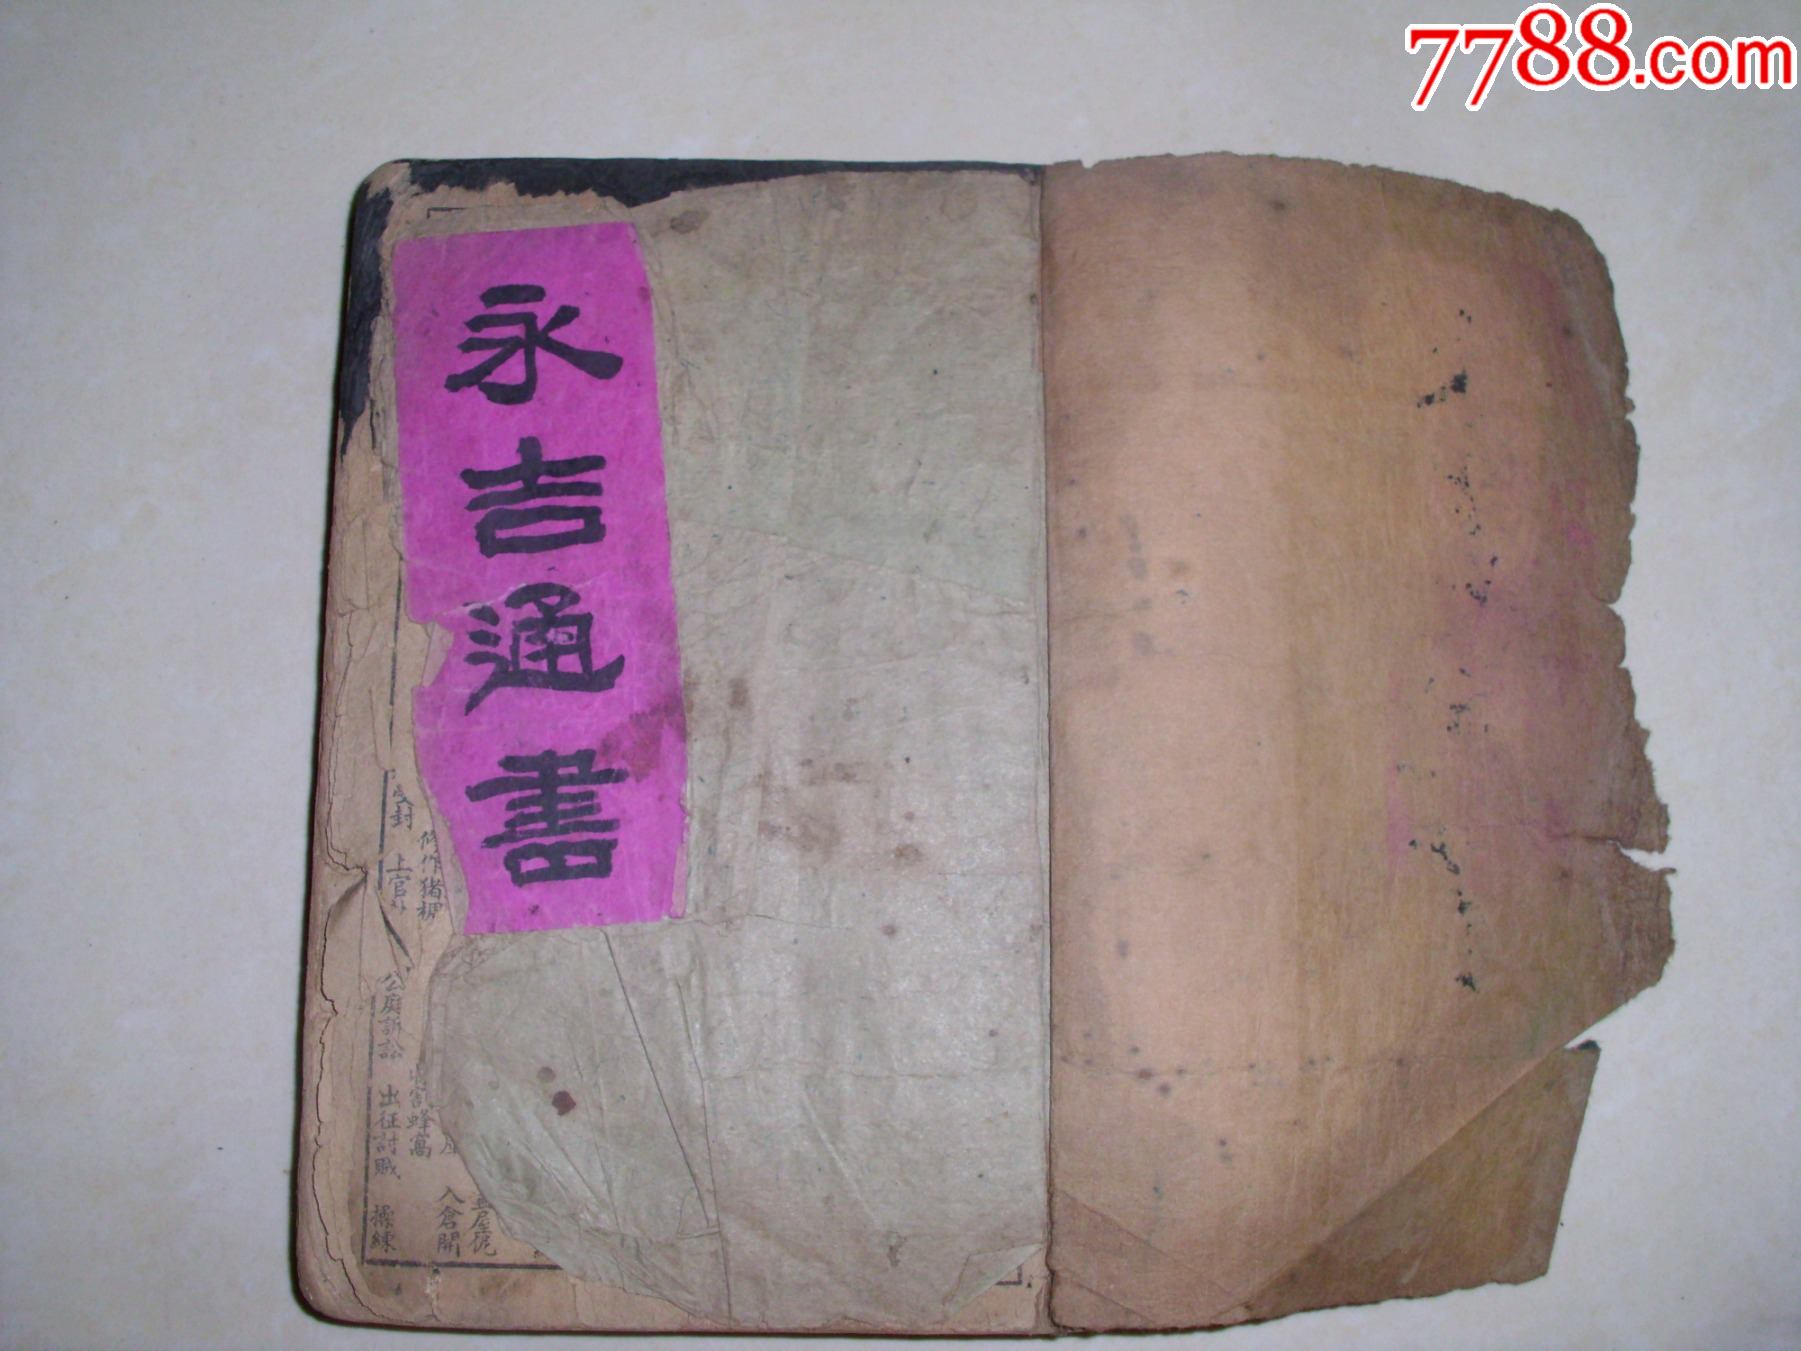 7788.com
永吉通書
入倉開
修作猪椆
割蜂窩
受封 上官
公庭訴訟 出征討賊 操練